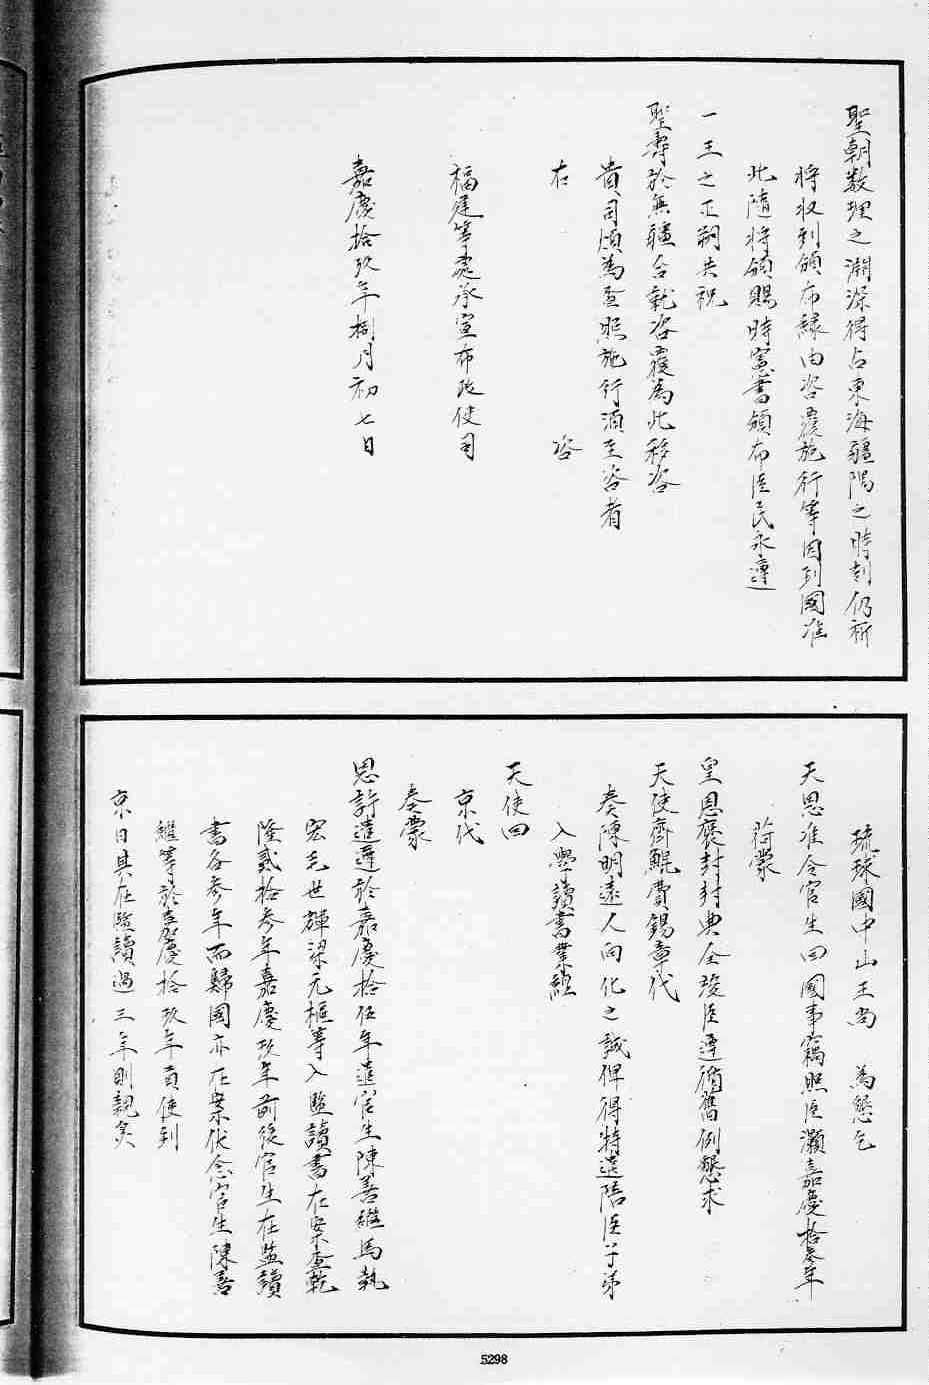 聖朝数理之淵深得占東海疆隅之時刻仍祈
將收到頒布緣由咨覆施行等因到國准
此隨將頒賜時憲書頒布臣民永遵
一王之正朔共祝
聖壽於無疆合就咨覆為此移咨
貴司煩為查照施行須至咨者
右 咨
福建等處承宣布政使司
嘉慶拾玖年捌月初七日
琉球國中山王尚 為懇乞
天恩准令官生回國事竊照臣灝嘉慶拾叁年
荷蒙
皇恩襃封封典全竣臣遵循舊例懇求
天使齊鯤費錫章代
奏陳明遠人向化之誠俾得特遣陪臣子弟
入學讀書業經
天使回
京代
奏蒙
恩許遣選於嘉慶拾伍年遣官生陳善繼馬執
宏毛世輝梁元樞等入監讀書在案查乾
隆貳拾叁年嘉慶玖年前後官生在監讀
書各參年而歸國亦在案伏念官生陳善
繼等於嘉慶拾玖年貢使到
京日其在監讀過三年則親炙
5298